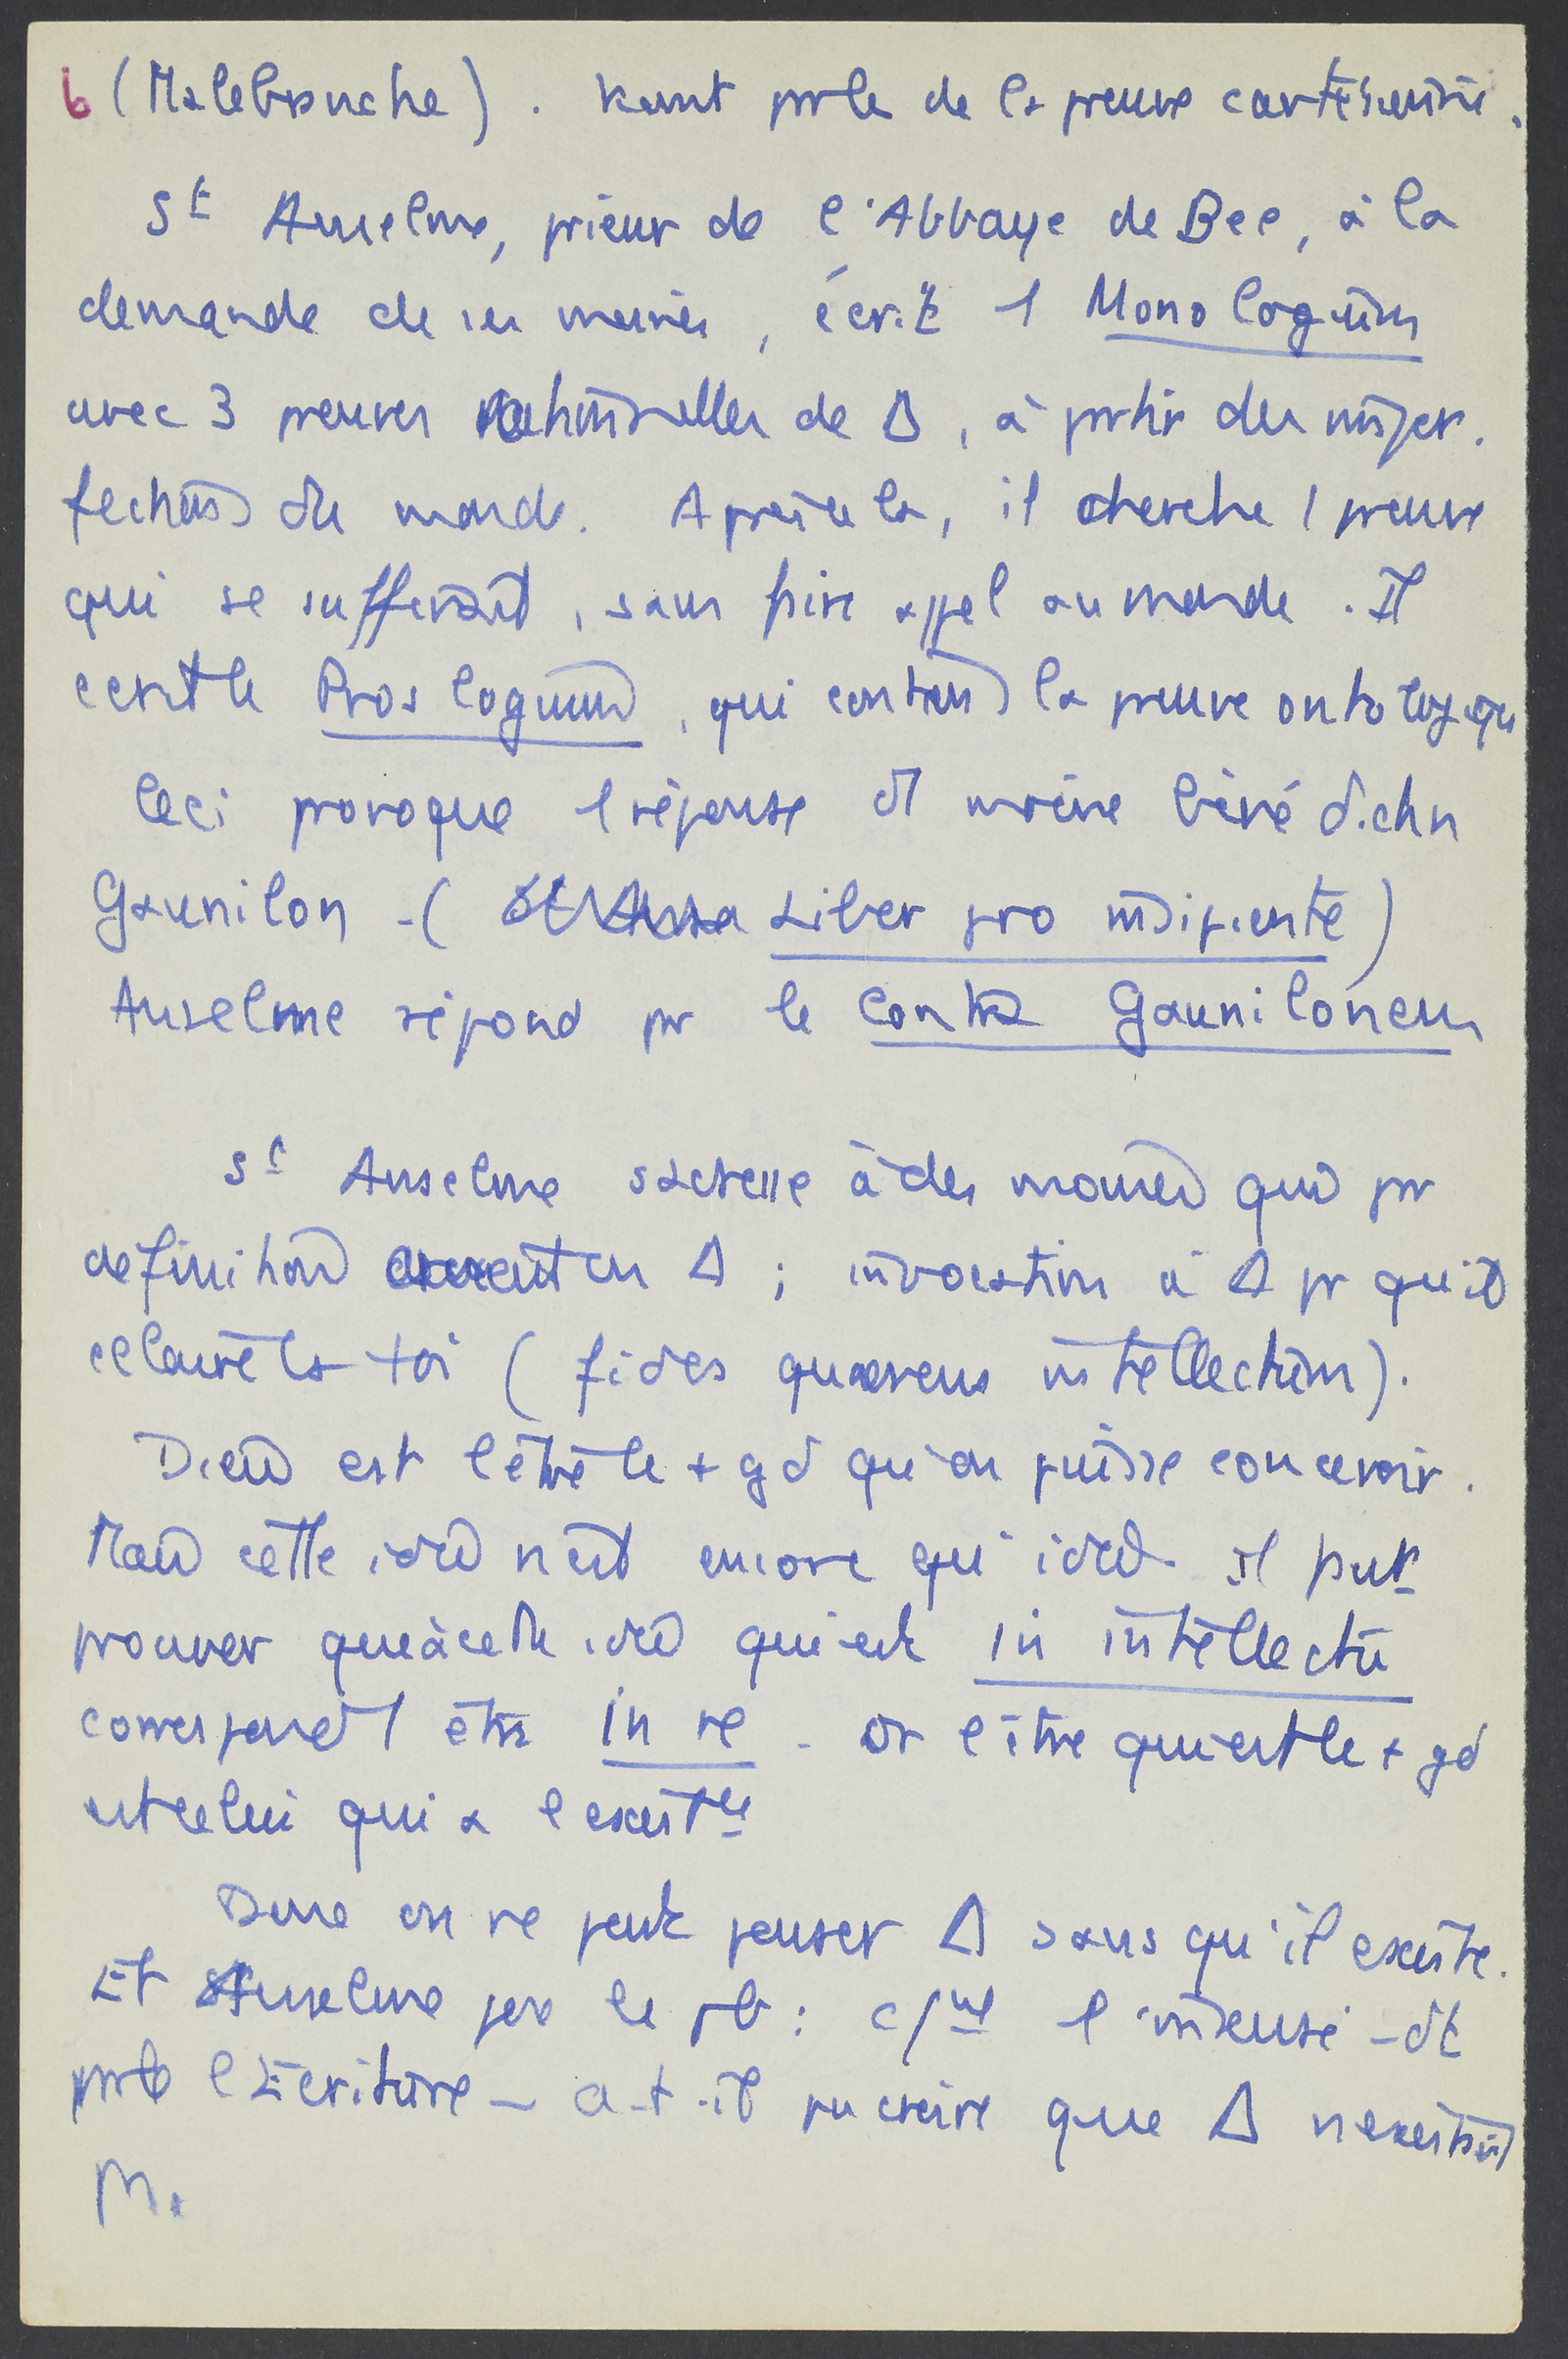 6 (Malebranche). Kant parle de la preuve cartésienne.
St Anselme, prieur de l'Abbaye de Bec, à la
demande de ses moines, écrit 1 Monologium
avec 3 preuves rationnelles de Δ, à partir des imper.
fections du monde. Après cela, il cherche 1 preuve
qui se suffirait, sans faire appel au monde. Il
écrit le Proslogium, qui contient la preuve ontologique
Ceci provoque 1 réponse d'1 moine bénédictin
Gaunilon - ( Liber pro insipiente)
Anselme répond par le Contra Gaunilonem
St Anselme s'adresse à des moines qui par
définition croient en Δ ; invocation à Δ pr qu'il
éclaire la foi (fides quaerens intellectum).
Dieu est l'être le + gd qu'on puisse concevoir.
Mais cette idée n'est encore qu'idée il faut
prouver que à cette idée qui est in intellectu
correspond 1 être in re. Or l'être qui est le + gd
est celui qui a l'existce
Donc on ne peut penser Δ sans qu'il existe.
Et Anselme pose le pb : c/mt l'insensé - dt
parle l'Ecriture - a-t-il pu croire que Δ n'existait